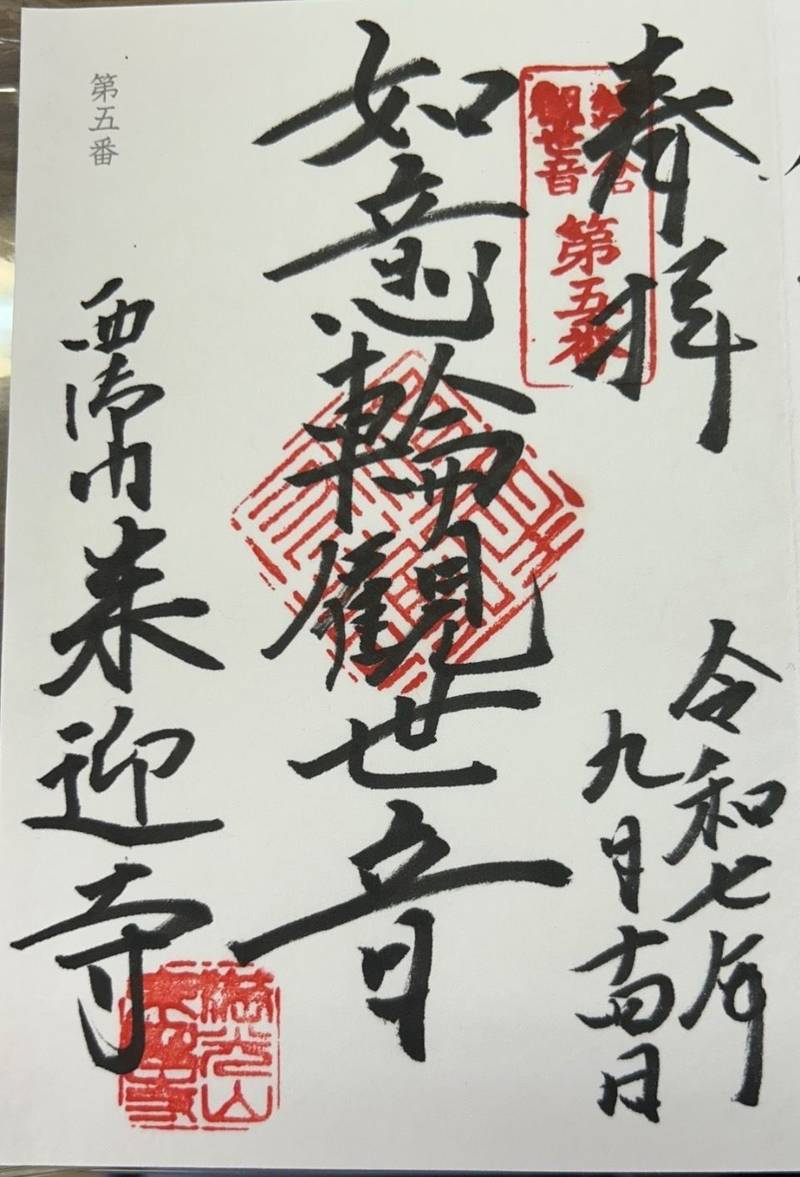 奉拝
鎌倉
観世音
第五番
令和七年
九月十四日
如意輪観世音
第五番
西御門
来迎寺
満光山
来迎寺